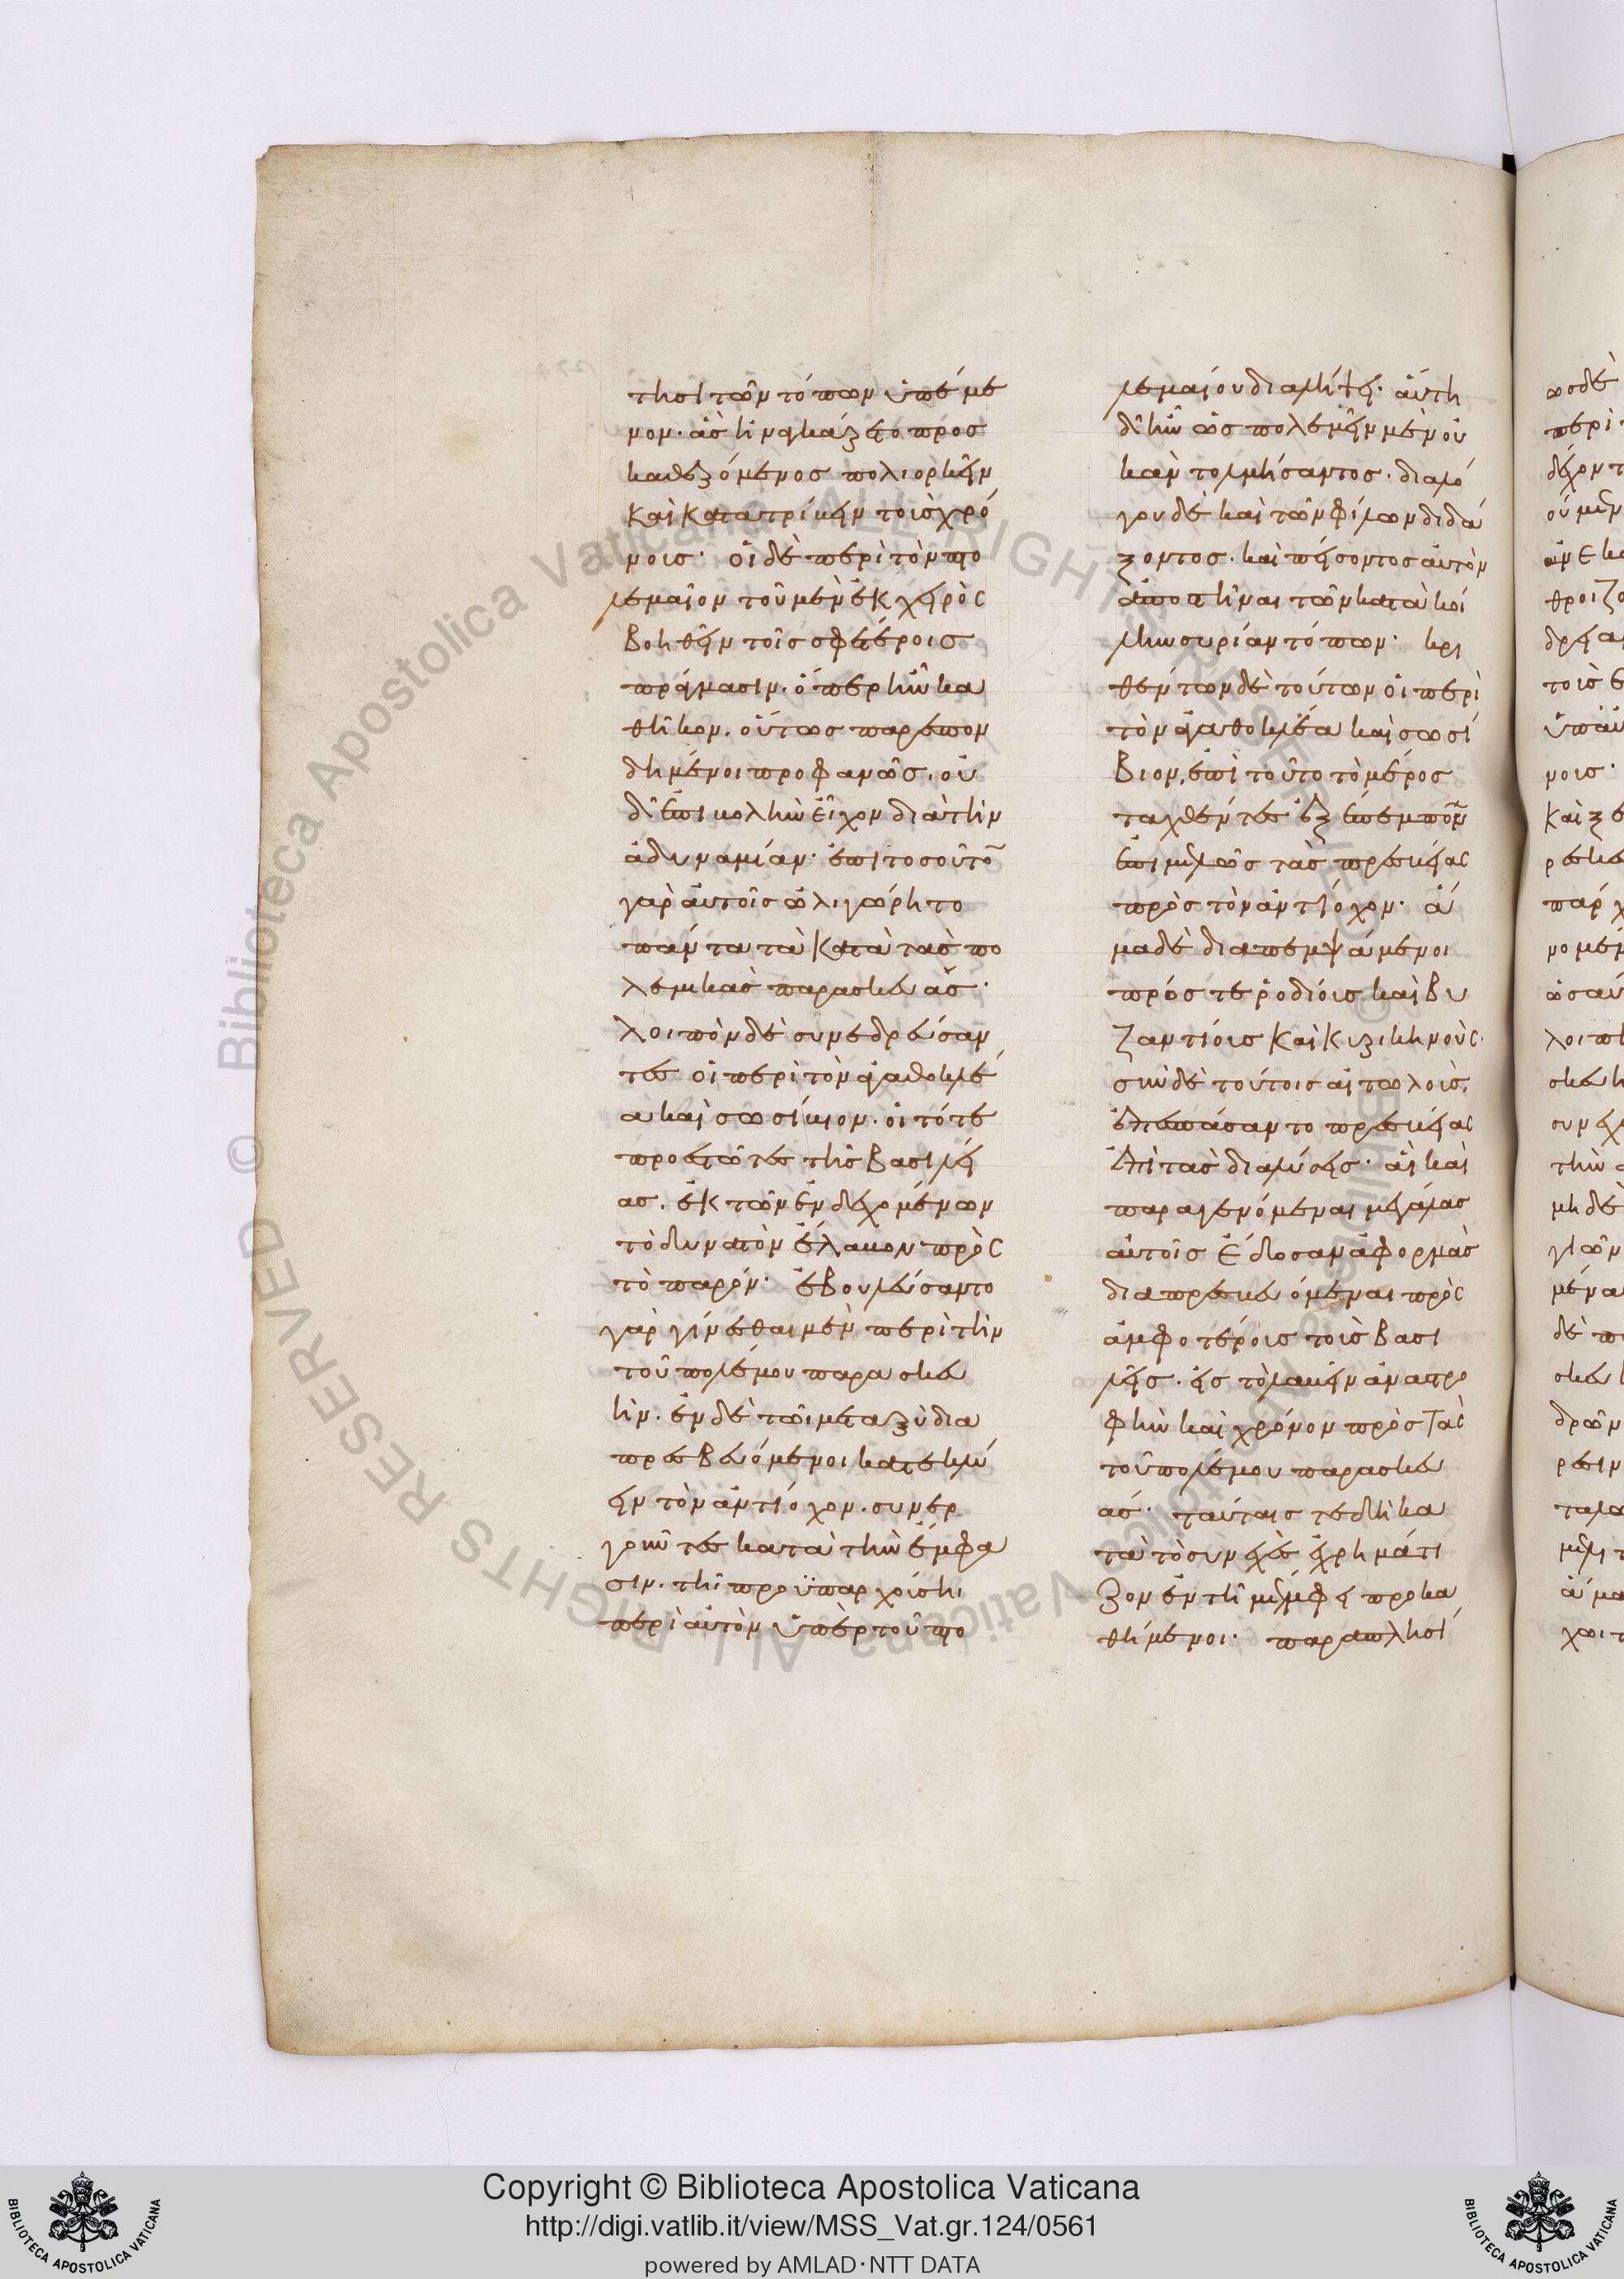 τησι τῶν τόπων ὑπέμε
νον· ἃς ἠναγκάζετο προσ
καθεζόμενος πολιορκεῖν
καὶ κατατρίβειν τοὺς χρό
νους· οἱ δὲ περὶ τὸν πτο
λεμαῖον τοῦ μὲν ἐκ χειρὸς
βοηθεῖν τοῖς σφετέροις
πράγμασιν. ὅπερ ἦν κα
θῆκον. οὕτως παρεσπον
δημένοι προφανῶς. οὐ
δ' ἐπιβολὴν εἶχον διὰ τὴν
ἀδυναμίαν· ἐπι τοσοῦτο
γὰρ αὐτοῖς ὠλιγώρητο
πάντα τὰ κατὰ τὰς πο
λεμικὰς παρασκευάς·
λοιπὸν δὲ συνεδρεύσαν
τες οἱ περὶ τὸν ἀγαθοκλέ
α καὶ σωσίβιον. οἱ τότε
προεστῶτες τῆς βασιλεί
ας. ἐκ τῶν ἐνδεχομένων
τὸ δυνατὸν ἔλαβον πρὸς
τὸ παρόν· ἐβουλεύσαντο
γὰρ γίνεσθαι μὲν περὶ τὴν
τοῦ πολέμου παρασκευ
ήν. ἐν δὲ τῶι μεταξὺ δια
πρεσβευόμενοι κατεκλύ
ειν τὸν ἀντίοχον. συνερ
γοῦντες κατὰ τὴν ἔμφα
σιν. τῆ προϋπαρχούσηι
περὶ αὐτὸν ὑπὲρ τοῦ πτο
λεμαίου διαλήψει· αὕτη
δ' ἦν ὡς πολεμεῖν μὲν οὐ
κ ἂν τολμήσαντος. διαλό
γου δὲ καὶ τῶν φίλων διδά
ξοντος. καὶ πείσοντος αὐτὸν
ἀποστῆναι τῶν κατὰ κοί
λην συρίαν τόπων· κρι
θέντων δὲ τούτων οἱ περὶ
τὸν ἀγαθοκλέα καὶ σωσί
βιον, ἐπὶ τοῦτο τὸ μέρος
ταχθέντες ἐξέπεμπον
ἐπιμελῶς τὰς πρεσβείας
πρὸς τὸν ἀντίοχον· ἅ
μα δὲ διαπεμψάμενοι
πρός τε ῥοδίους καὶ βυ
ζαντίους καὶ κυζικηνοὺς·
σὺν δὲ τούτοις αἰτωλοὺς,
ἐπεσπάσαντο πρεσβείας
ἐπὶ τὰς διαλύσεις· αἳ καὶ
παραγενόμεναι μεγάλας
αὐτοῖς ἔδοσαν ἀφορμὰς
διαπρεσβευόμεναι πρὸς
ἀμφοτέρους τοὺς βασι
λεῖς. εἰς τὸ λαβεῖν ἀναστρο
φὴν καὶ χρόνον πρὸς τὰς
τοῦ πολέμου παρασκευ
άς· ταύταις τε δὴ κα
τὰ τὸ συνεχὲς ἐχρημάτι
ζον ἐν τῆ μέμφει προκα
θήμενοι· παραπλησί